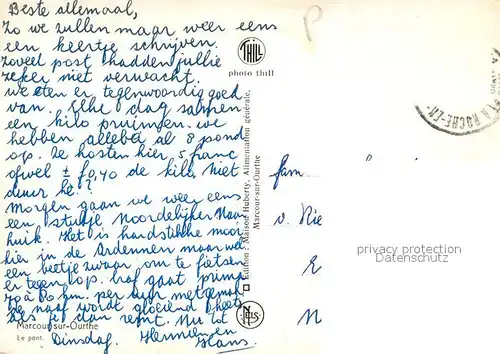 Beste allemaal,
Zo we zullen maar weer eens
een keertje schrijven.
Zoveel post hadden jullie
zeker niet verwacht.
we eten er tegenwoordig goed
van. Elke dag samen
een kilo pruimen. we
hebben allebei al 8 pond
op. Ze kosten hier 5 franc
ofwel ± f 0,40 de kilo. Niet
duur hè?
Morgen gaan we weer eens
een stukje Noordelijker. Naar
huik. Het is hardstikke mooi
hier in de Ardennen maar wel
een beetje zwaar om te fietsen
er tegen op. Naf gaat prima
70 à 80 km. per uur met gemak
De naaf wordt gloeiend heet
als je dan remt. Nu tot
Dinsdag. Hermien en
Hans.
Marcour-sur-Ourthe
Le pont.
THILL
photo thill
Edition: Maison Huberty, Alimentation générale,
Marcour-sur-Ourthe
NELS
P
LA ROCHE-EN-
fam
v. Nie
E
N
privacy protection
Datenschutz